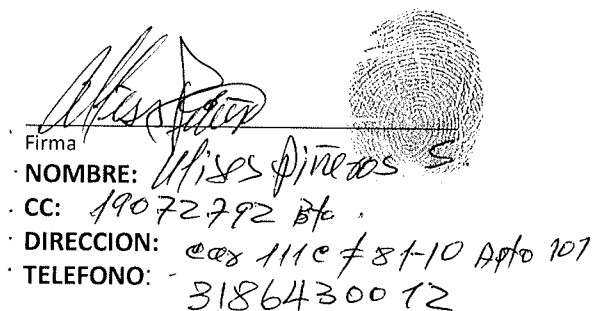 Firma
NOMBRE: Ulises Piñeros S
CC: 19072792 Bta.
DIRECCION: car 111c # 81-10 Apto 101
TELEFONO: 3186430012